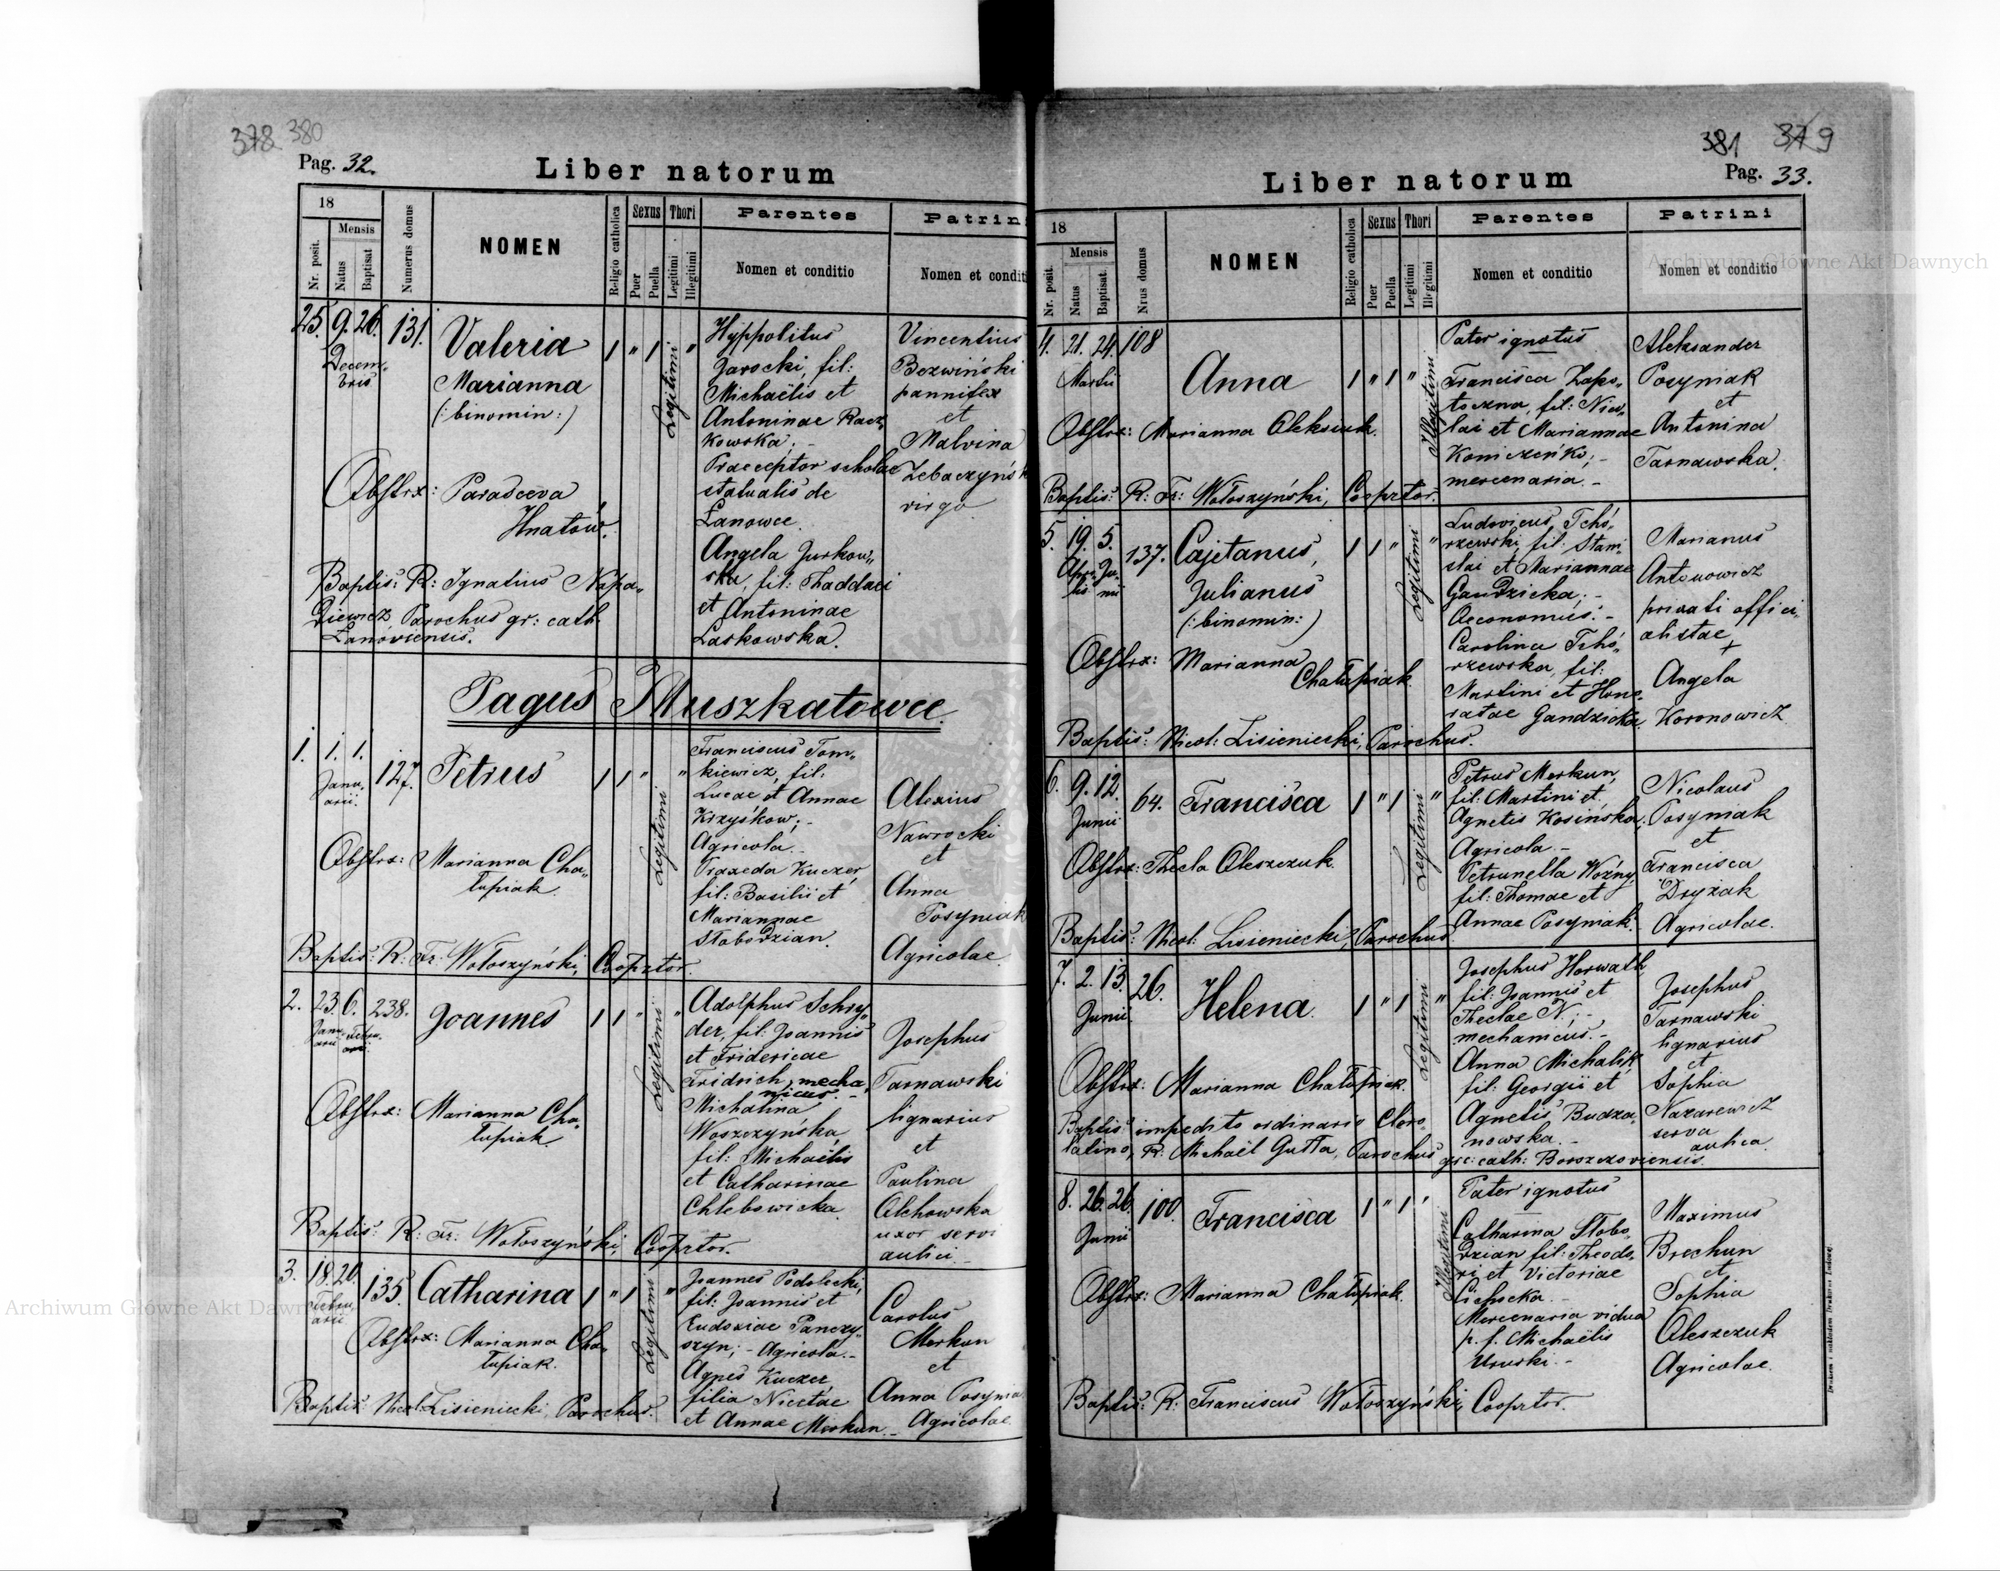 378 380
Pag. 32.
Liber natorum
18
Mensis
Nr. posit.
Natus
Baptisat
Numerus domus
NOMEN
Religio catholica
Sexus
Puer
Puella
Thori
Legitimi
Illegitimi
Parentes
Nomen et conditio
Patrini
Nomen et conditi
25. 9. 26. 131.
Decem-
bris
Valeria
Marianna
(: binomin :)
1 " 1 "
Legitimi
Hyppolitus
Jarocki, fil:
Michaëlis et
Antoninae Racz,
kowska; -
Praeceptor scholae
statualis de
Łanowce.
Angela Jurkow,,
ska, fil: Thaddaei
et Antoninae
Laskowska.
Vincentius
Bezwiński
pannifex
et
Malvina
Zebaczyńsk
virgo
Obstrx: Paradceva
Hnatów.
Baptis: R: Ignatius Napa,,
diewicz Parochus gr: cath.
Łanoviensis.
Pagus Muszkatowce.
1. 1. 1. 127.
Janu,
arii.
Petrus
1 1 " "
Legitimi
Franciscus Tom,,
kiewicz, fil:
Lucae et Annae
Krzyśkow; -
Agricola. -
Praxeda Kuczer,
fil: Basilii et
Mariannae
Słobodzian.
Alexius
Nawrocki
et
Anna
Posyniak
Agricolae.
Obstrx: Marianna Cha,,
łupiak.
Baptis: R: Fr: Wołoszyński, Cooprtor.
2. 23. 6. 238.
Janu,
arii
Febru,
arii
Joannes
1 1 " "
Legitimi
Adolphus Schry,,
der, fil: Joannis
et Fridericae
Fridrich, mecha
nicus. -
Michalina
Woszczyńska,
fil: Michaëlis
et Catharinae
Chlebowicka.
Josephus
Tarnawski
lignarius
et
Paulina
Olchowska
uxor servi
aulici. -
Obstrx: Marianna Cha,
łupiak.
Baptis: R: Fr: Wołoszyński, Cooprtor.
3. 18. 20. 135.
Febru,
arii
Catharina
1 " 1 "
Legitimi
Joannes Podolecki,
fil: Joannis et
Eudoxiae Panczy,,
szyn; - Agricola. -
Agnes Kuczer
filia Nicetae
et Annae Merkun. -
Carolus
Merkun
et
Anna Posynia
Agricolae
Obstrx: Marianna Cha,
łupiak.
Baptis: Nicol: Lisieniecki, Parochus.
381 379
Pag. 33.
Liber natorum
18
Mensis
Nr. posit.
Natus
Baptisat
Nrus domus
NOMEN
Religio catholica
Sexus
Puer
Puella
Thori
Legitimi
Illegitimi
Parentes
Nomen et conditio
Patrini
Nomen et conditio
4. 21. 24. 108
Martii
Anna
1 " 1 "
Illegitimi
Pater ignotus
Francisca Zapo,,
toczna, fil: Nico,,
lai et Mariannae
Koniczeńko; -
mercenaria. -
Aleksander
Posyniak
et
Antonina
Tarnawska.
Obstrx: Marianna Oleksiuk.
Baptis: R: Fr: Wołoszyński, Cooprtor.
5. 19. 5. 137.
Apri-
lis
Ju-
nii
Cajetanus,
Julianus
(: binomin :)
1 1 " "
Legitimi
Ludovicus Tchó,
rzewski, fil: Stani
slai et Mariannae
Gandzicka; -
Oeconomus. -
Carolina Tchó,
rzewska, fil:
Martini et Hono,
ratae Gandzicka.
Marianus
Antonowicz
privati offici,
alistae
+
Angela
Koronowicz
Obstrx: Marianna
Chałupiak.
Baptis: Nicol: Lisieniecki, Parochus.
6. 9. 12. 64.
Junii
Francisca
1 " 1 "
Legitimi
Petrus Merkun,
fil: Martini et
Agnetis Kosińska.
Agricola. -
Petrunella Woźny
fil: Thomae et
Annae Posyniak.
Nicolaus
Posyniak
et
Francisca
Dryżak
Agricolae.
Obstrx: Thecla Oleszczuk.
Baptis: Nicol: Lisieniecki, Parochus.
7. 2. 13. 26.
Junii
Helena.
1 " 1 "
Legitimi
Josephus Horwath
fil: Joannis et
Theclae N; -
mechanicus. -
Anna Michalik
fil: Georgii et
Agnetis Budza,
nowska. -
Josephus
Tarnawski
lignarius
et
Sophia
Nazarewicz
serva
aulica.
Obstrx: Marianna Chałupiak.
Baptis: impedito ordinario Clero,
latino, R: Michaël Gutta, Parochus gr: cath: Borszczoviensis.
8. 26. 26. 100.
Junii
Francisca
1 " 1 "
Illegitimi
Pater ignotus
Catharina Słobo,
dzian fil: Theodo,
ri et Victoriae
Mercenaria vidua
p. f. Michaëlis
Uruski. -
Maximus
Brechun
et
Sophia
Oleszczuk
Agricolae.
Obstrx: Marianna Chałupiak.
Baptis: R: Franciscus Wołoszyński, Cooprtor.
Archiwum Główne Akt Dawnych
Archiwum Główne Akt Dawnych